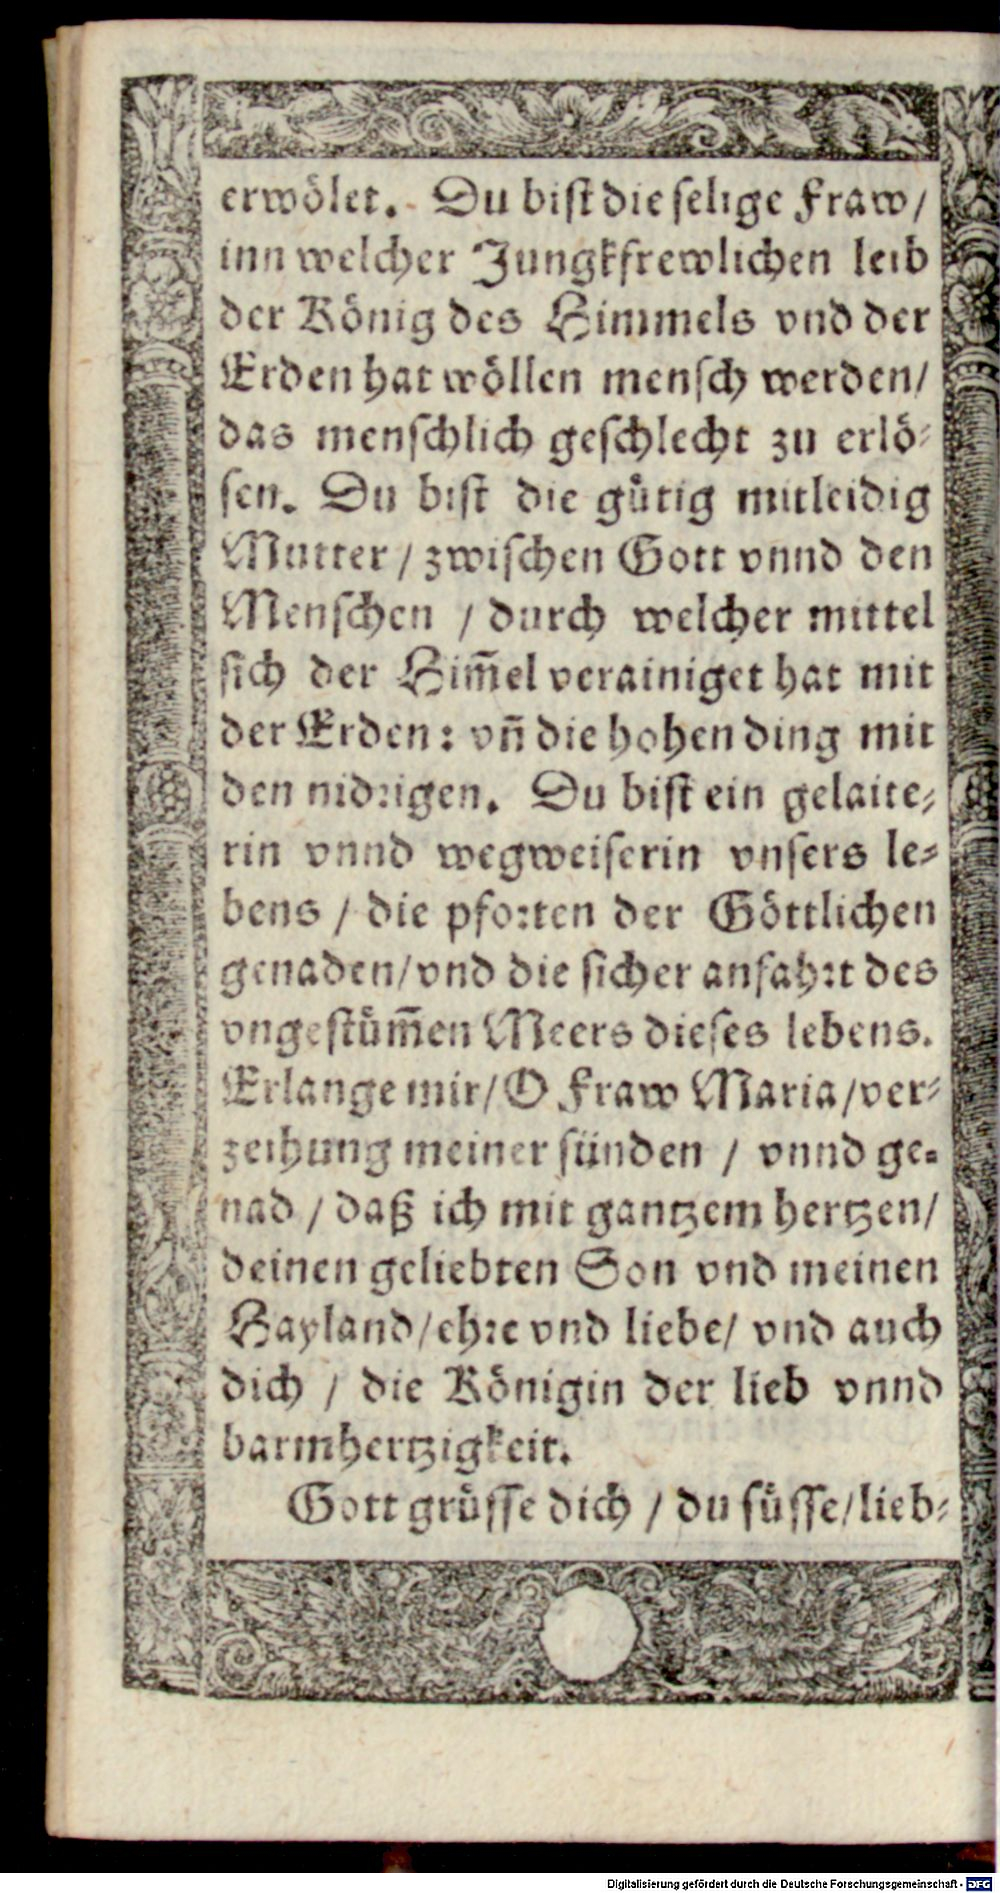 erwölet. Du bist die selige Fraw/
inn welcher Jungkfrewlichen leib
der König des Himmels vnd der
Erden hat wöllen mensch werden/
das menschlich geschlecht zu erlö-
sen. Du bist die gütig mitleidig
Mutter / zwischen Gott vnnd den
Menschen / durch welcher mittel
sich der Him̄el verainiget hat mit
der Erden: vn̄ die hohen ding mit
den nidrigen. Du bist ein gelaite-
rin vnnd wegweiserin vnsers le-
bens / die pforten der Göttlichen
genaden/vnd die sicher anfahrt des
vngestüm̄en Meers dieses lebens.
Erlange mir/O Fraw Maria/ver-
zeihung meiner sünden / vnnd ge-
nad / daß ich mit gantzem hertzen/
deinen geliebten Son vnd meinen
Hayland/ehre vnd liebe/ vnd auch
dich / die Königin der lieb vnnd
barmhertzigkeit.
Gott grüsse dich / du süsse/lieb-
Digitalisierung gefördert durch die Deutsche Forschungsgemeinschaft - DFG